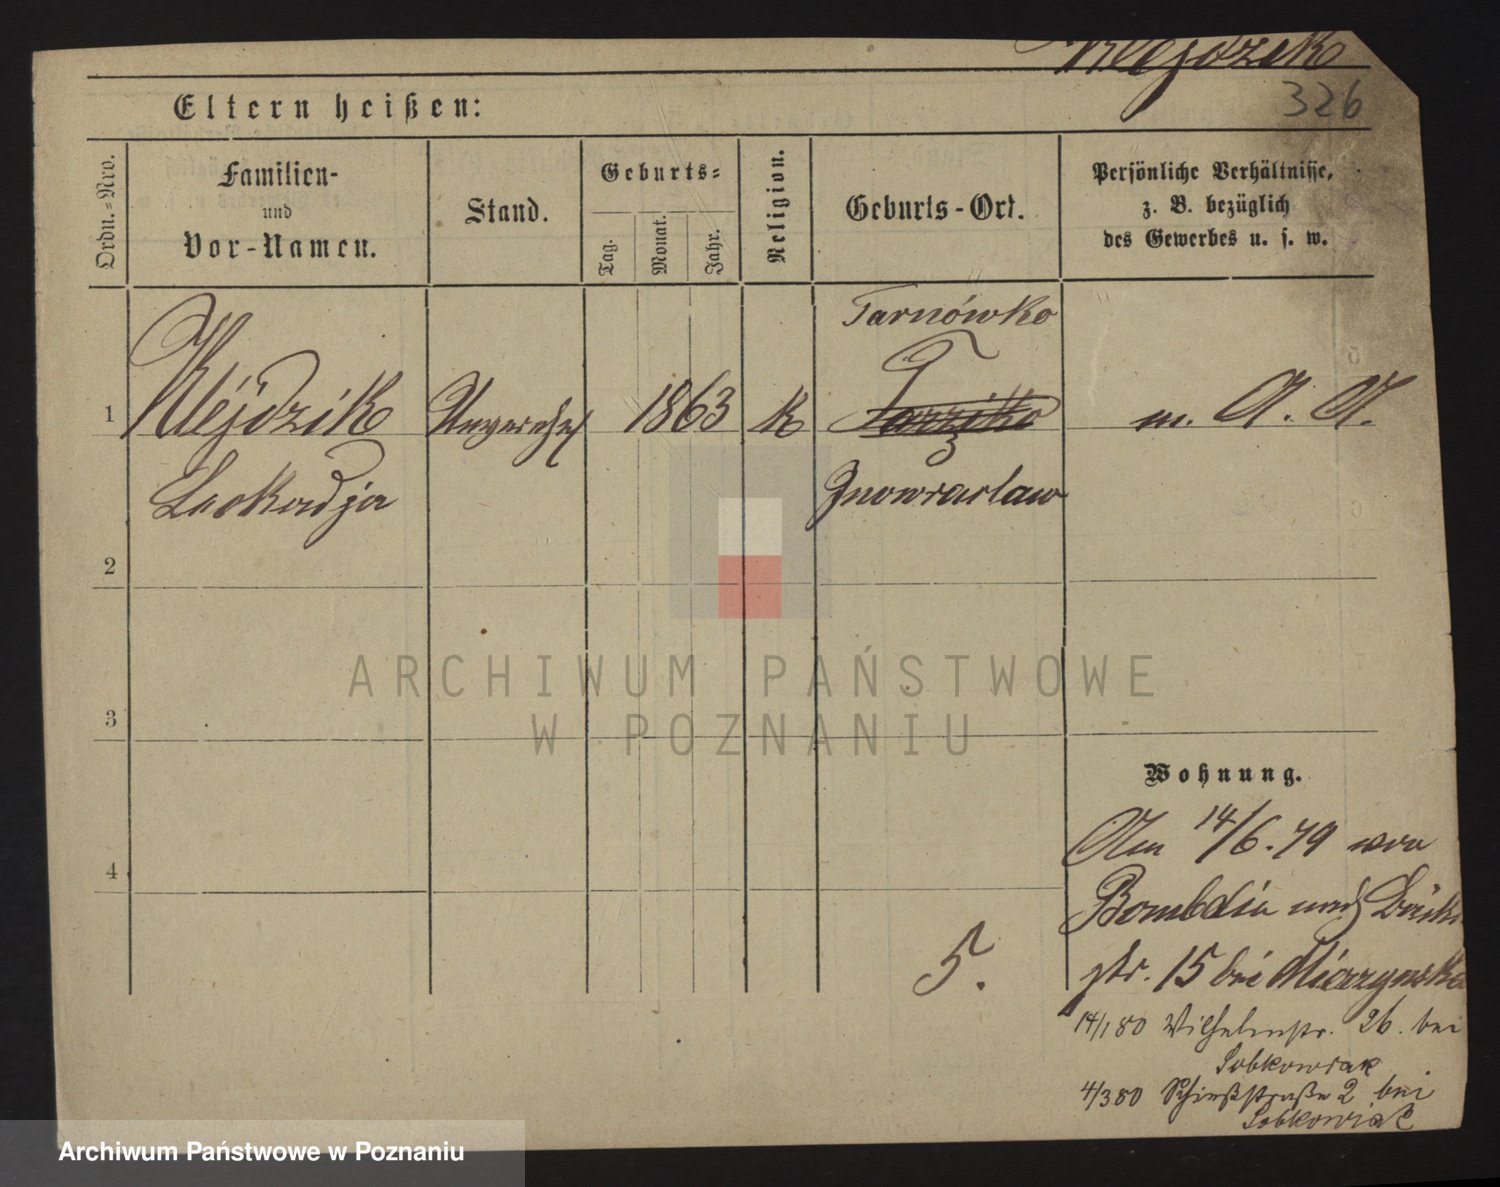 Klejdzik
326
Eltern heißen:
Ordn.-Nro.
Familien-
und
Vor-Namen.
Stand.
Geburts-
Tag.
Monat.
Jahr.
Religion.
Geburts-Ort.
Persönliche Verhältnisse,
z. B. bezüglich
des Gewerbes u. s. w.
Tarnówko
1 Klejdzik 1863 K m. A. A.
Leokadja Inowraclaw
2
3
4
ARCHIWUM PAŃSTWOWE
W POZNANIU
Wohnung.
Am 14/6. 79 von
nach
5.
str. 15 bei
14/1 80 Wilhelmstr. 26. bei
Sobkowiak
4/3 80 Schießstraße 2 bei
Sobkowiak
Archiwum Państwowe w Poznaniu